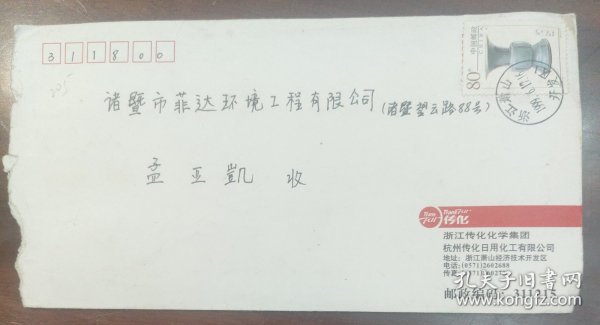 311800
80分
中国邮政
CHINA
浙江萧山
诸暨市菲达环境工程有限公司(诸暨望云路88号)
孟亚凱 收
传化
浙江传化化学集团
杭州传化日用化工有限公司
地址：浙江萧山经济技术开发区
电话：(0571)2602688
邮政编码：311215
孔夫子旧书网
kongfz.com